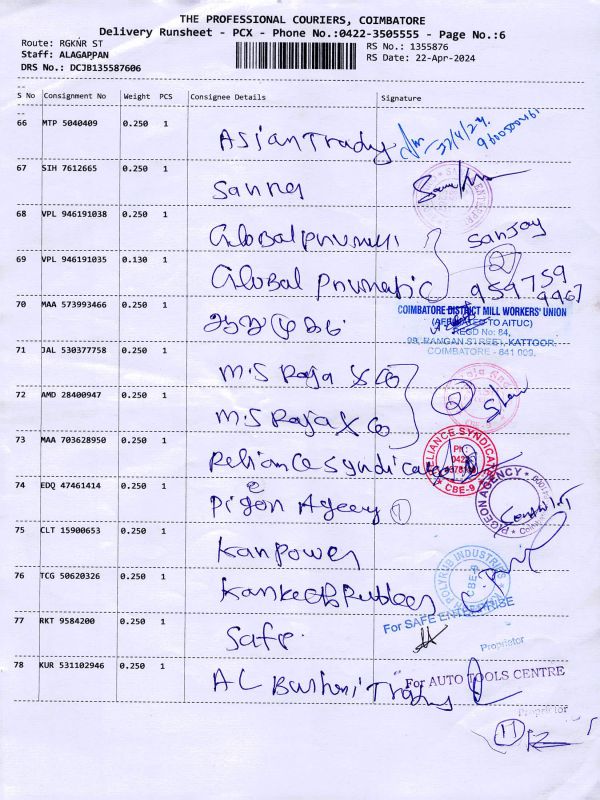 THE PROFESSIONAL COURIERS, COIMBATORE
Delivery Runsheet - PCX - Phone No.:0422-3505555 - Page No.:6
Route: RGKNR ST
RS No.: 1355876
Staff: ALAGAPPAN
RS Date: 22-Apr-2024
DRS No.: DCJB135587606
S No Consignment No Weight PCS Consignee Details Signature
66 MTP 5040409 0.250 1 Asian Trady
67 SIH 7612665 0.250 1
68 VPL 946191038 0.250 1 Global Sanjay
69 VPL 946191035 0.130 1 Global Priumatic 2
959759
9967
70 MAA 573993466 0.250 1
COIMBATORE DISTRICT MILL WORKERS' UNION
(AFFILIATED TO AITUC)
REGD No: 84,
99, RANGAN STREET, KATTOOR,
COIMBATORE - 641 009.
71 JAL 530377758 0.250 1 M.S Raja & Co
72 AMD 28400947 0.250 1 M.S Raja & Co 2
73 MAA 703628950 0.250 1 Reliance Syndicate
RELIANCE SYNDICATE
CBE-9
74 EDQ 47461414 0.250 1 Pigeon Agency 1
PIGEON AGENCY
75 CLT 15900653 0.250 1 Kanpower
76 TCG 50620326 0.250 1
POLYRUB INDUSTRIES
CBE-9
For SAFE ENTERPRISE
77 RKT 9584200 0.250 1 Safe
Proprietor
78 KUR 531102946 0.250 1
For AUTO TOOLS CENTRE
Proprietor
11